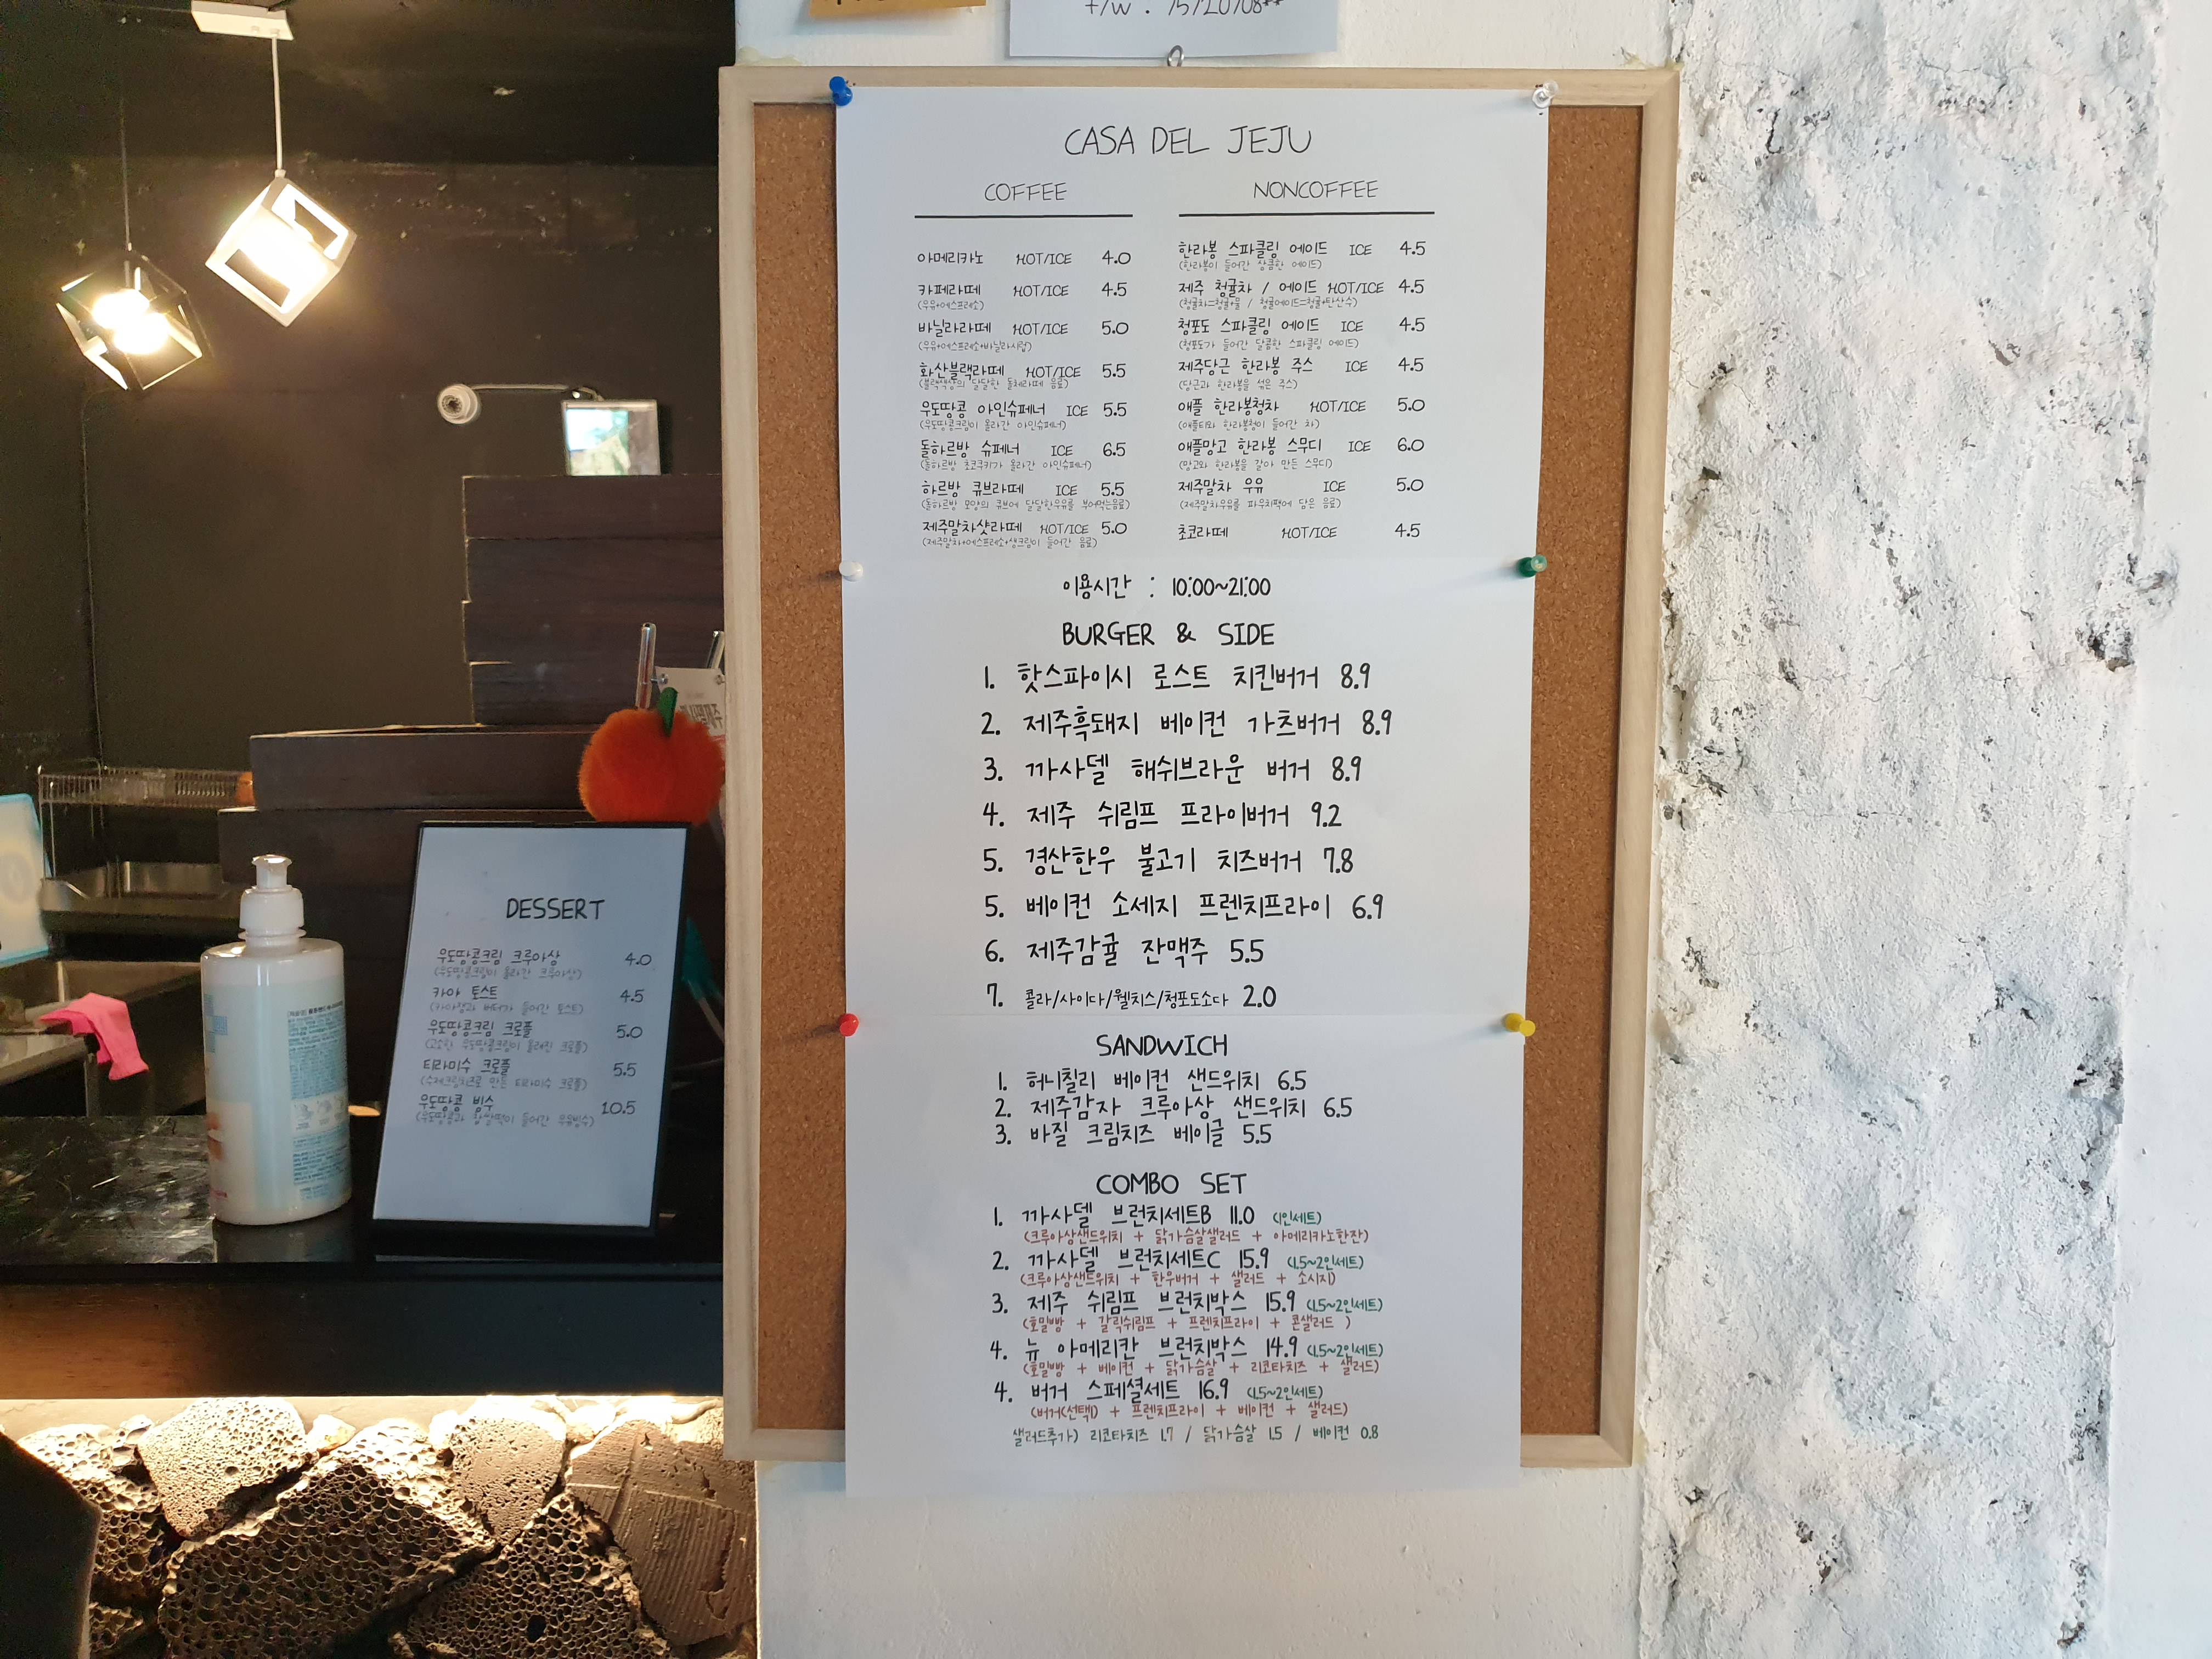 CASA DEL JEJU
COFFEE
아메리카노 HOT/ICE 4.0
카페라떼 HOT/ICE 4.5
(우유+에스프레소)
바닐라라떼 HOT/ICE 5.0
(우유+에스프레소+바닐라시럽)
화산블랙라떼 HOT/ICE 5.5
(블랙색상의 달달한 돌체라떼 음료)
우도땅콩 아인슈페너 ICE 5.5
(우도땅콩크림이 올라간 아인슈페너)
돌하르방 슈페너 ICE 6.5
(돌하르방 초코쿠키가 올라간 아인슈페너)
하르방 큐브라떼 ICE 5.5
(돌하르방 모양의 큐브에 달달한우유를 부어먹는음료)
제주말차샷라떼 HOT/ICE 5.0
(제주말차+에스프레소+생크림이 들어간 음료)
NONCOFFEE
한라봉 스파클링 에이드 ICE 4.5
(한라봉이 들어간 상큼한 에이드)
제주 청귤차 / 에이드 HOT/ICE 4.5
(청귤차=청귤+물 / 청귤에이드=청귤+탄산수)
청포도 스파클링 에이드 ICE 4.5
(청포도가 들어간 달콤한 스파클링 에이드)
제주당근 한라봉 주스 ICE 4.5
(당근과 한라봉을 섞은 주스)
애플 한라봉청차 HOT/ICE 5.0
(애플티와 한라봉청이 들어간 차)
애플망고 한라봉 스무디 ICE 6.0
(망고와 한라봉을 갈아 만든 스무디)
제주말차 우유 ICE 5.0
(제주말차우유를 파우치팩에 담은 음료)
초코라떼 HOT/ICE 4.5
이용시간 : 10:00~21:00
BURGER & SIDE
1. 핫스파이시 로스트 치킨버거 8.9
2. 제주흑돼지 베이컨 가츠버거 8.9
3. 까사델 해쉬브라운 버거 8.9
4. 제주 쉬림프 프라이버거 9.2
5. 경산한우 불고기 치즈버거 7.8
5. 베이컨 소세지 프렌치프라이 6.9
6. 제주감귤 잔맥주 5.5
7. 콜라/사이다/웰치스/청포도소다 2.0
SANDWICH
1. 허니칠리 베이컨 샌드위치 6.5
2. 제주감자 크루아상 샌드위치 6.5
3. 바질 크림치즈 베이글 5.5
COMBO SET
1. 까사델 브런치세트B 11.0 (1인세트)
(크루아상샌드위치 + 닭가슴살샐러드 + 아메리카노한잔)
2. 까사델 브런치세트C 15.9 (1.5~2인세트)
(크루아상샌드위치 + 한우버거 + 샐러드 + 소시지)
3. 제주 쉬림프 브런치박스 15.9 (1.5~2인세트)
(호밀빵 + 갈릭쉬림프 + 프렌치프라이 + 콘샐러드 )
4. 뉴 아메리칸 브런치박스 14.9 (1.5~2인세트)
(호밀빵 + 베이컨 + 닭가슴살 + 리코타치즈 + 샐러드)
4. 버거 스페셜세트 16.9 (1.5~2인세트)
(버거(선택1) + 프렌치프라이 + 베이컨 + 샐러드)
샐러드추가) 리코타치즈 1.7 / 닭가슴살 1.5 / 베이컨 0.8
DESSERT
우도땅콩크림 크루아상 4.0
(우도땅콩크림이 올라간 크루아상)
카야 토스트 4.5
(카야잼과 버터가 들어간 토스트)
우도땅콩크림 크로플 5.0
(고소한 우도땅콩크림이 올려진 크로플)
티라미수 크로플 5.5
(수제크림치즈로 만든 티라미수 크로플)
우도땅콩 빙수 10.5
(우도땅콩과 찹쌀떡이 들어간 우유빙수)